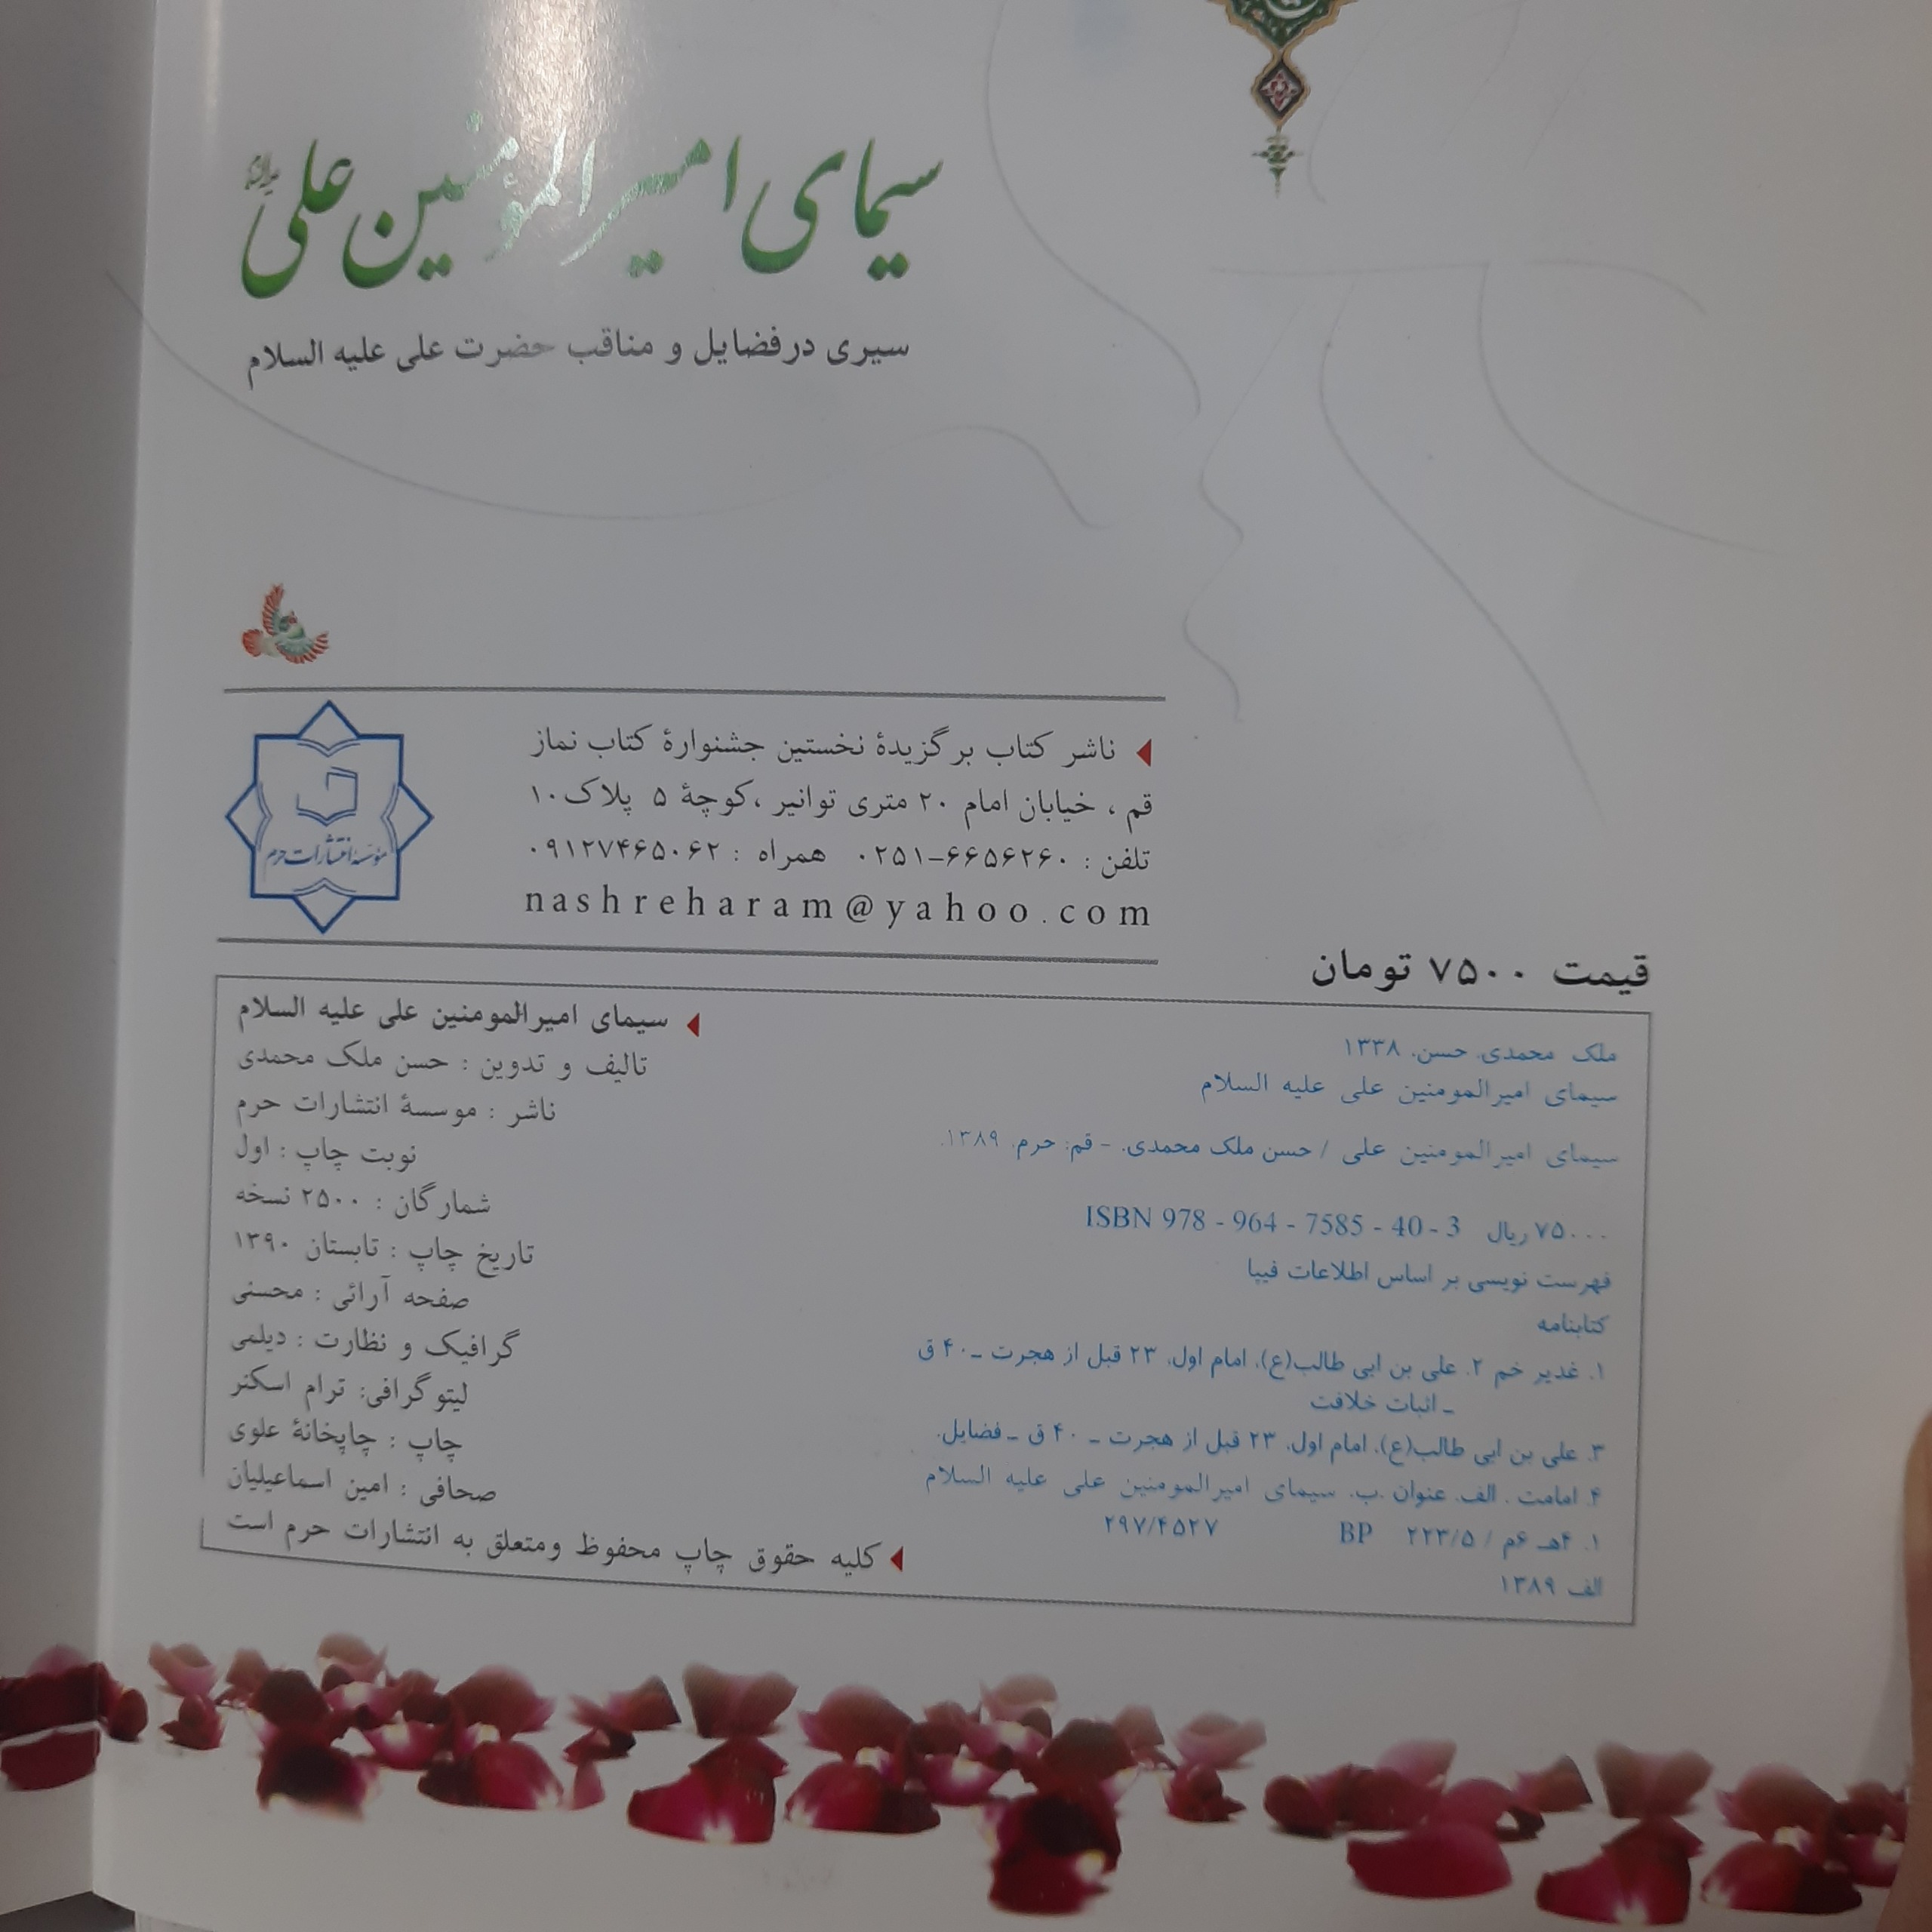 سیمای امیرالمؤمنین علی
سیری درفضایل و مناقب حضرت علی علیه السلام
ناشر کتاب برگزیدهٔ نخستین جشنوارهٔ کتاب نماز
قم ، خیابان امام ۲۰ متری توانیر ،کوچهٔ ۵ پلاک۱۰
تلفن : ۶۶۵۶۲۶۰-۰۲۵۱ همراه : ۰۹۱۲۷۴۶۵۰۶۲
nashreharam@yahoo.com
مؤسسه انتشارات حرم
قیمت ۷۵۰۰ تومان
ملک محمدی. حسن. ۱۳۳۸
سیمای امیرالمومنین علی علیه السلام
سیمای امیرالمومنین علی / حسن ملک محمدی. - قم: حرم. ۱۳۸۹.
۷۵۰۰۰ ریال ISBN 978 - 964 - 7585 - 40 - 3
فهرست نویسی بر اساس اطلاعات فیپا
کتابنامه
۱. غدیر خم ۲. علی بن ابی طالب(ع). امام اول. ۲۳ قبل از هجرت ـ ۴۰ ق
ـ اثبات خلافت
۳. علی بن ابی طالب(ع). امام اول. ۲۳ قبل از هجرت ـ ۴۰ ق ـ فضایل.
۴. امامت . الف. عنوان .ب. سیمای امیرالمومنین علی علیه السلام
۱. ۴هـ ۶م / ۲۲۳/۵ BP ۲۹۷/۴۵۲۷
الف ۱۳۸۹
سیمای امیرالمومنین علی علیه السلام
تالیف و تدوین : حسن ملک محمدی
ناشر : موسسهٔ انتشارات حرم
نوبت چاپ : اول
شمارگان : ۲۵۰۰ نسخه
تاریخ چاپ : تابستان ۱۳۹۰
صفحه آرائی : محسنی
گرافیک و نظارت : دیلمی
لیتوگرافی: ترام اسکنر
چاپ : چاپخانهٔ علوی
صحافی : امین اسماعیلیان
کلیه حقوق چاپ محفوظ ومتعلق به انتشارات حرم است